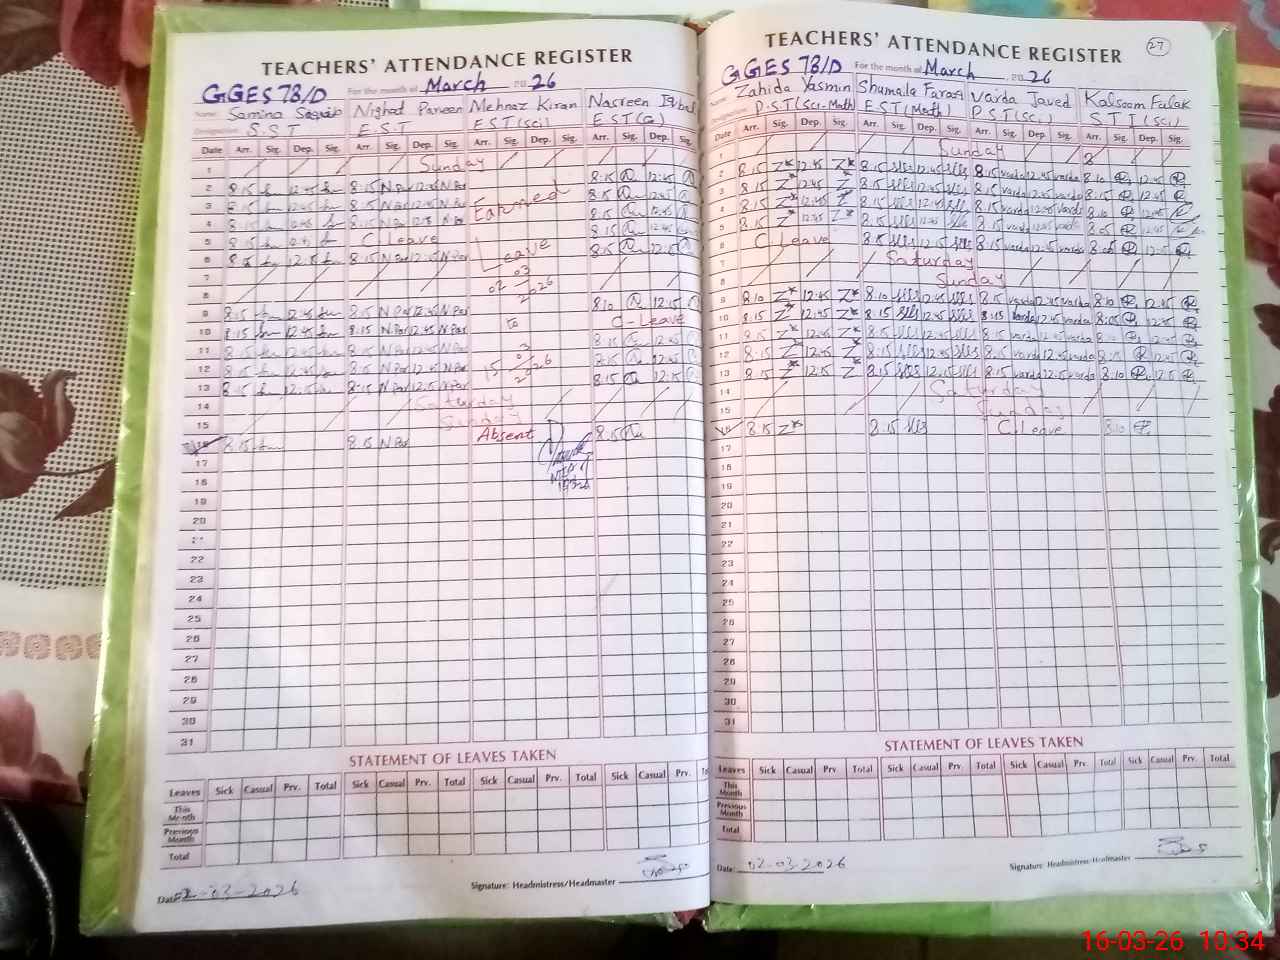 TEACHERS' ATTENDANCE REGISTER
GGES 78/D For the month of March 20 26
Name: Samina Nighat Parveen Mehnaz Kiran Nasreen Iqbal
Designation: S.S.T E.S.T EST(Sci) EST(G)
Date Arr. Sig. Dep. Sig. Arr. Sig. Dep. Sig. Arr. Sig. Dep. Sig. Arr. Sig. Dep.
1 Sunday
2 8:15 12:45 8:15 N Par 12:45 N Par 8:15 12:45
3 8:15 12:45 8:15 N Par 12:45 N Par Earned 8:15 12:45
4 8:15 12:45 8:15 N Par N Par 8:15 12:45
5 8:15 12:45 C Leave 8:15 12:45
6 8:15 12:15 8:15 N Par 12:15 N Par Leave 8:15 12:15
7 02-03-2026
8
9 8:15 12:45 8:15 N Par 12:45 N Par 8:10 12:45
10 8:15 12:45 8:15 N Par 12:45 N Par to C-Leave
11 8:15 12:45 8:15 N Par 12:45 N Par 8:15 12:45
12 8:15 12:45 8:15 N Par 12:45 N Par 15-03-2026 12:45
13 8:15 12:15 8:15 N Par 12:15 N Par 8:15 12:15
14 Saturday
15 Sunday
16 8:15 8:15 N Par Absent 8:15
17
18
19
20
21
22
23
24
25
26
27
28
29
30
31
STATEMENT OF LEAVES TAKEN
Leaves Sick Casual Prv. Total Sick Casual Prv. Total Sick Casual Prv. Total Sick Casual Prv.
This Month
Previous Month
Total
Date: 02-03-2026 Signature: Headmistress/Headmaster
TEACHERS' ATTENDANCE REGISTER 27
GGES 78/D For the month of March 20 26
Name: Zahida Yasmin Shumaila Farooq Varda Javed Kalsoom Falak
Designation: P.S.T(Sci-Math) EST(Math) PST(Sci) STI(Sci)
Date Arr. Sig. Dep. Sig. Arr. Sig. Dep. Sig. Arr. Sig. Dep. Sig. Arr. Sig. Dep. Sig.
1 Sunday
2 8:15 Z* 12:45 Z* 8:15 12:45 8:15 varda 12:45 varda 8:10 12:45
3 8:15 Z* 12:45 Z 8:15 12:45 8:15 varda 12:45 varda 8:15 12:45
4 8:15 Z* 12:45 Z 8:15 12:45 8:15 varda 12:45 varda 8:10 12:45
5 8:15 Z* 12:45 Z* 8:15 12:45 8:15 varda 12:45 varda 8:05
6 C Leave 8:15 12:15 8:15 varda 12:15 varda 8:05
7 Saturday
8 Sunday
9 8:10 Z* 12:45 Z* 8:10 12:45 8:15 varda 12:45 varda 8:10 12:45
10 8:15 Z* 12:45 Z* 8:15 12:45 8:15 varda 12:45 varda 8:05 12:45
11 8:15 Z* 12:45 Z* 8:15 12:45 8:15 varda 12:45 varda 8:10 12:45
12 8:15 Z* 12:45 Z* 8:15 12:45 8:15 varda 12:45 varda 8:15 12:45
13 8:15 Z* 12:15 Z* 8:15 12:15 8:15 varda 12:15 varda 8:10
14 Saturday
15 Sunday
16 8:15 Z* 8:15 C.Leave 8:10
17
18
19
20
21
22
23
24
25
26
27
28
29
30
31
STATEMENT OF LEAVES TAKEN
Leaves Sick Casual Prv Total Sick Casual Prv. Total Sick Casual Prv. Total Sick Casual Prv. Total
This Month
Previous Month
Total
Date: 02-03-2026 Signature: Headmistress/Headmaster
16-03-26 10:34